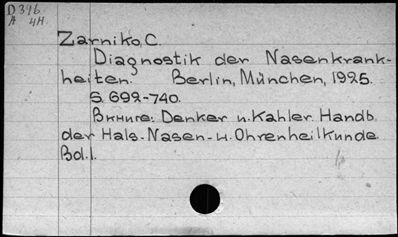 D 346
A 4H.
Zarniko, C.
Diagnostik der Nasenkrank-
heiten. Berlin, München, 1925.
S. 692-740.
Вкниге: Denker u. Kahler. Handb.
der Hals-Nasen-u. Ohrenheilkunde
Bd. I.